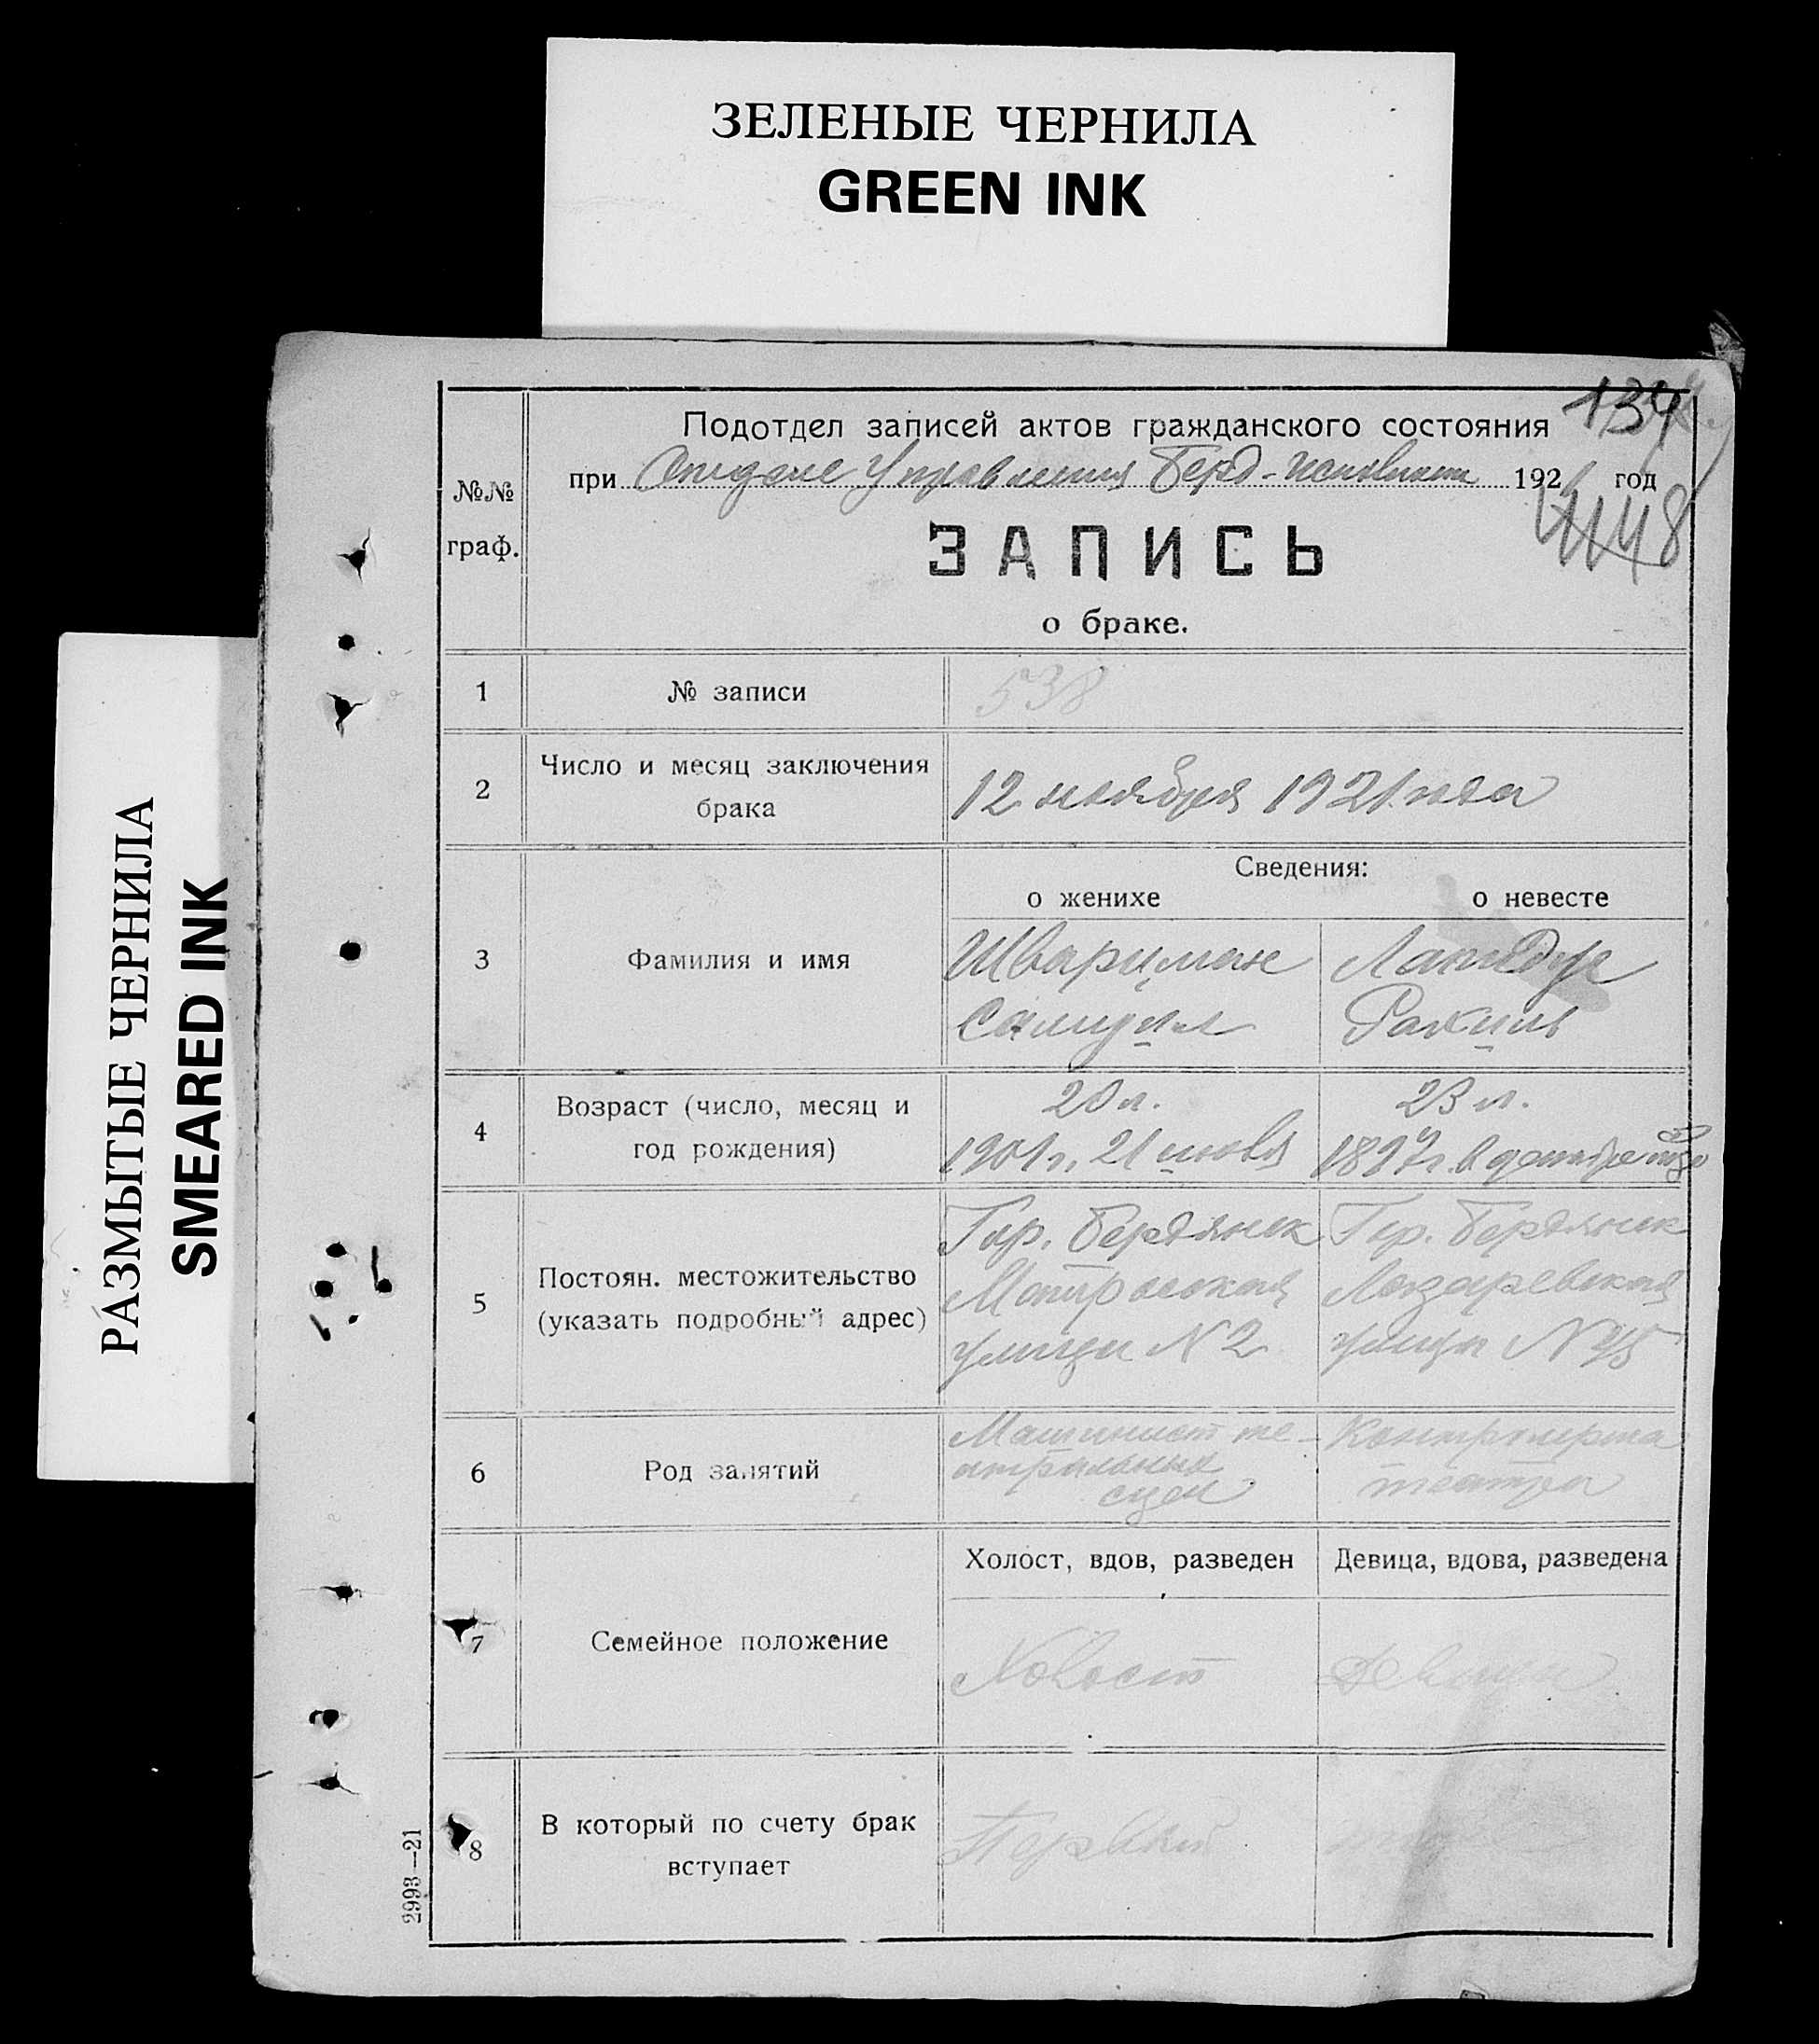 ЗЕЛЕНЫЕ ЧЕРНИЛА
GREEN INK
РАЗМЫТЫЕ ЧЕРНИЛА
SMEARED INK
134
Подотдел записей актов гражданского состояния
при Отделе Управления Берд-Исполкома 1921 год
48
№№
граф.
ЗАПИСЬ
о браке.
1 № записи 538
2 Число и месяц заключения
брака
12 ноября 1921 года
Сведения:
о женихе о невесте
3 Фамилия и имя
Шварцман
Самуил
Рахиль
4 Возраст (число, месяц и
год рождения)
20 л. 23 л.
1901 г., 21 1897 г. в
5 Постоян. местожительство
(указать подробный адрес)
Гор. Бердянск Гор. Бердянск
Матросская Лазаревская
улица N 2 улица N 45
6 Род занятий
Машинист те- Контролерша
атральных театра
сцен
7 Семейное положение
Холост, вдов, разведен Девица, вдова, разведена
Холост Девица
8 В который по счету брак
вступает
Первый
2993—21